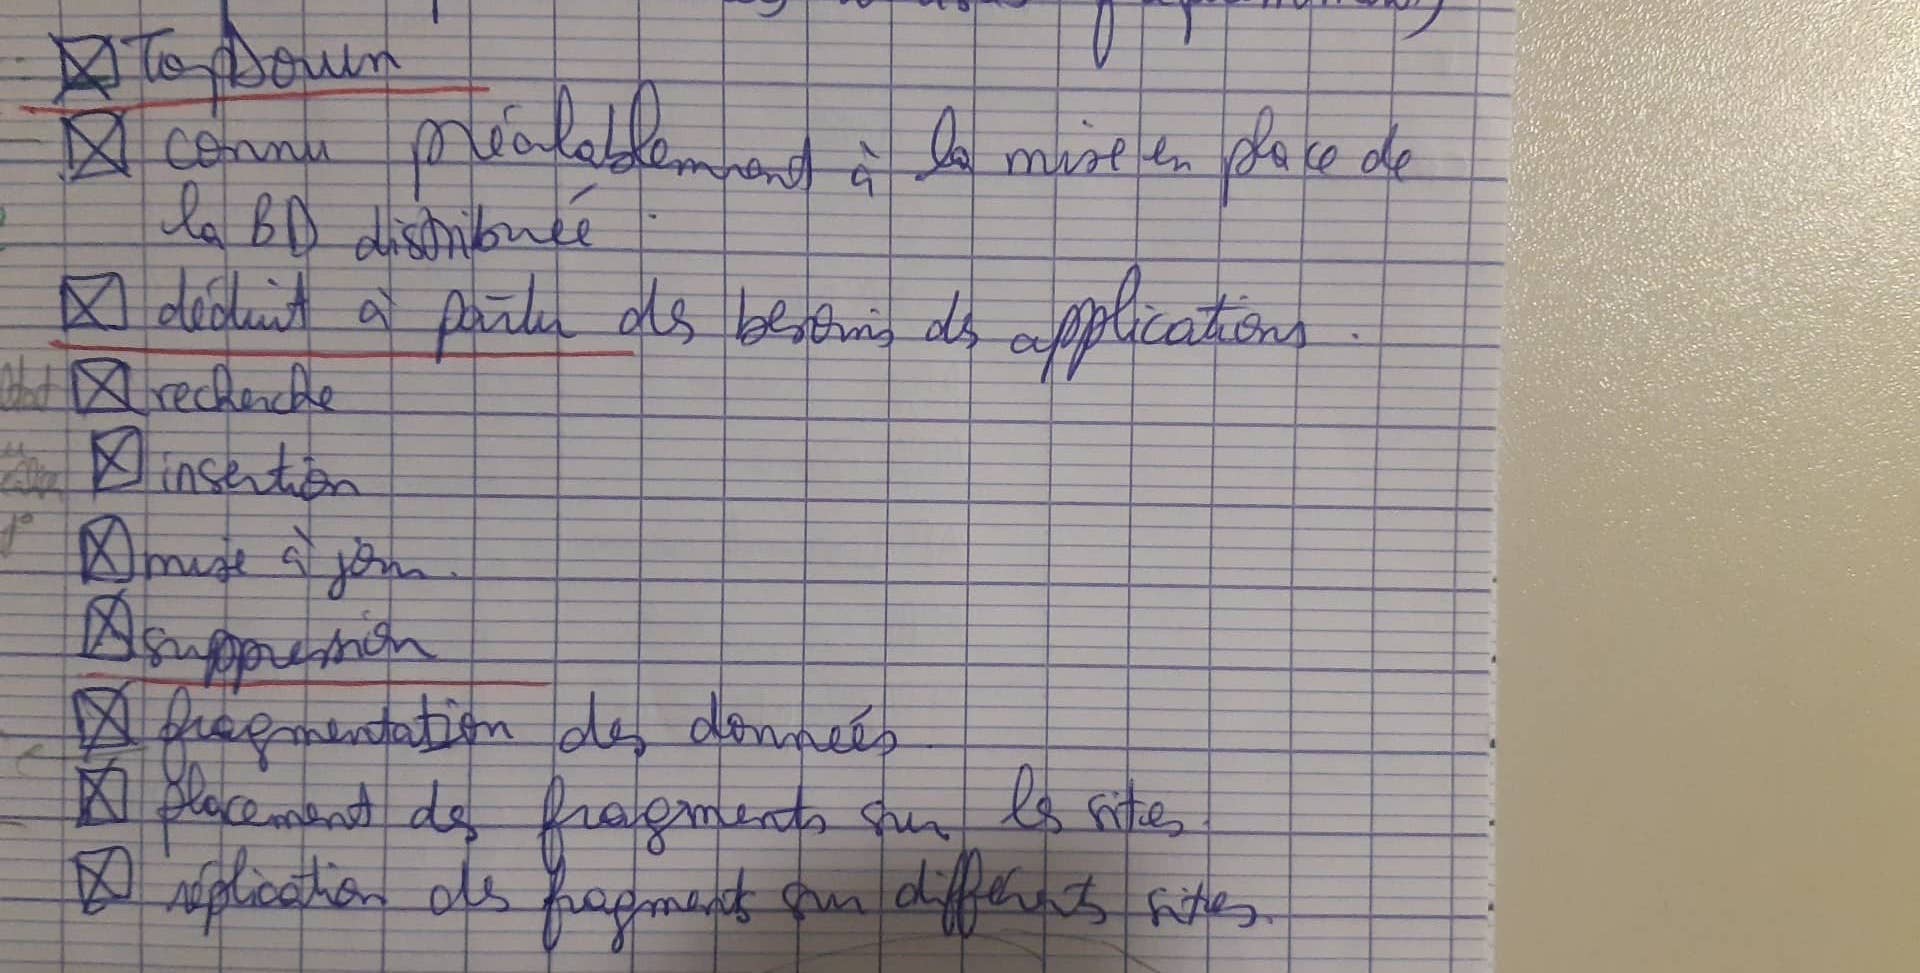 ☒ TopDown
☒ connu préalablemment à la mise en place de
la BD distribuée.
☒ déduit à partir des besoins des applications.
☒ recherche
☒ insertion
☒ mise à jour.
☒ suppression
☒ fragmentation des données.
☒ placement des fragments sur les sites.
☒ réplication des fragments sur différents sites.